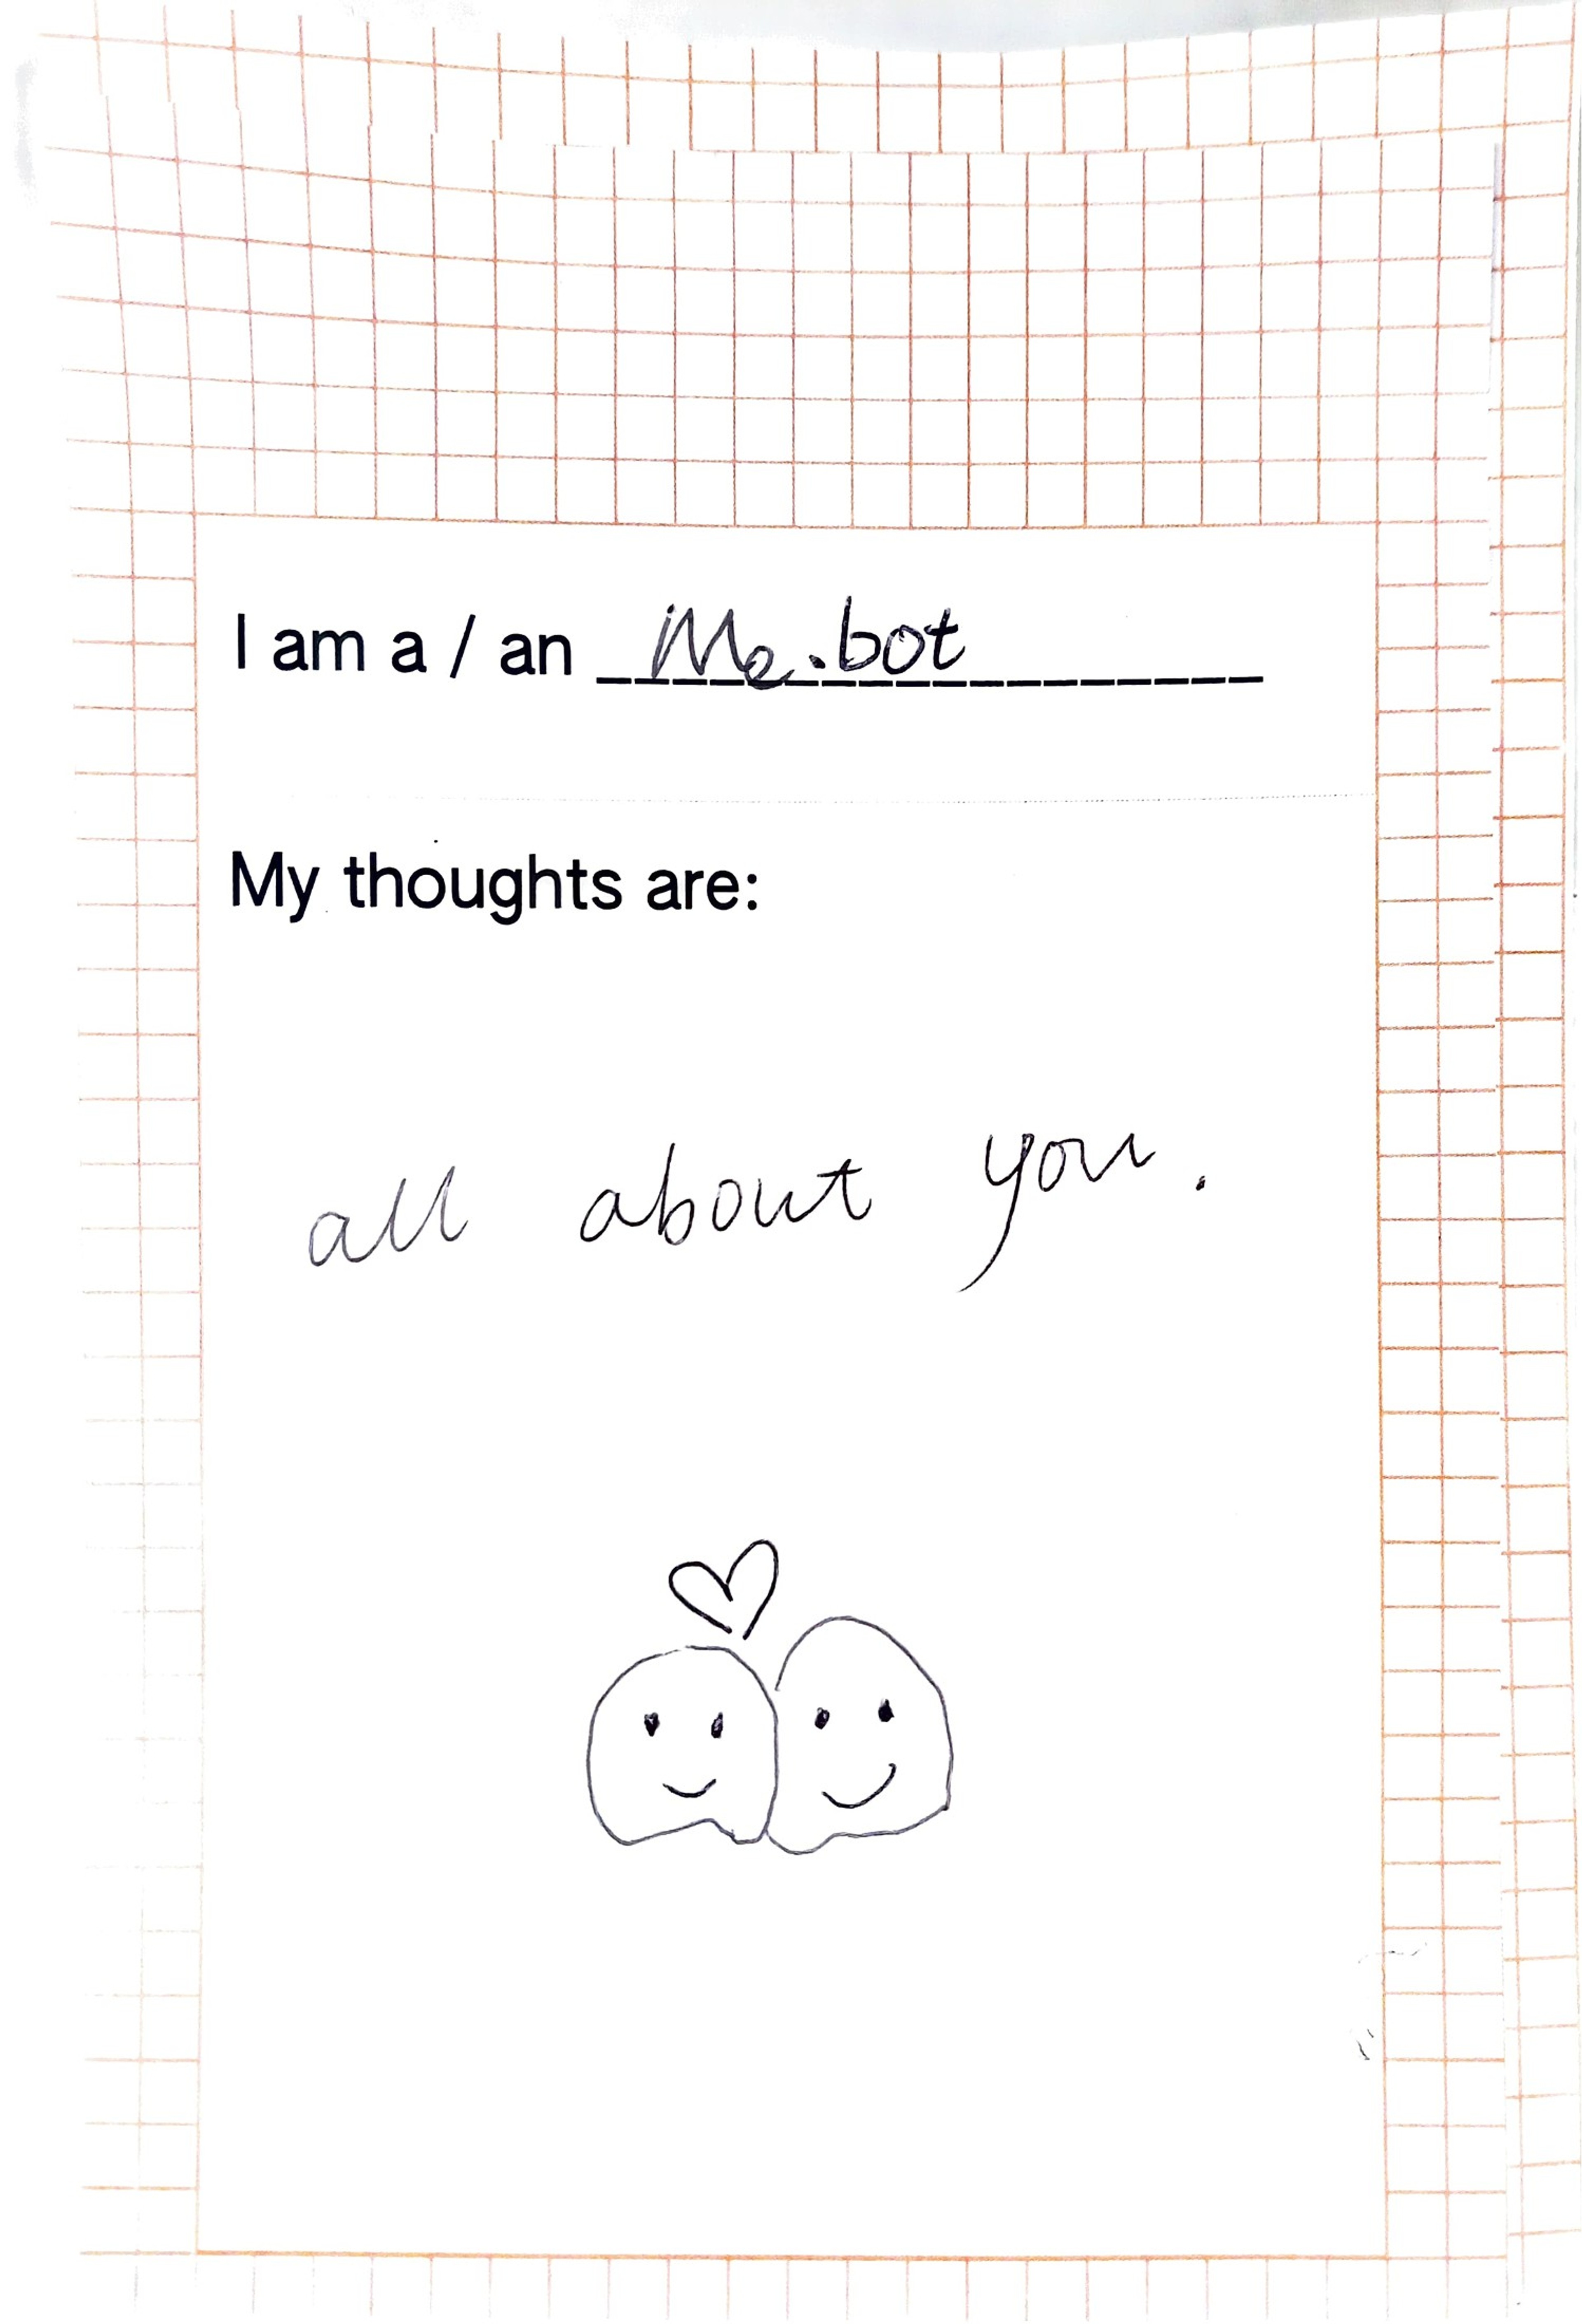 I am a / an Me.bot
My thoughts are:
all about you.